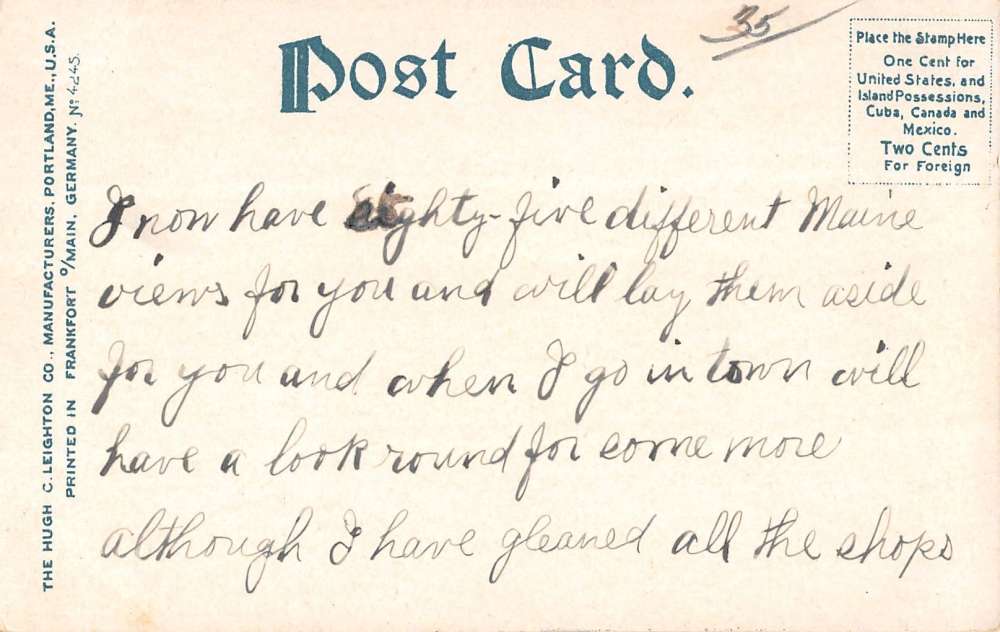 35
Post Card.
Place the Stamp Here
One Cent for
United States, and
Island Possessions,
Cuba, Canada and
Mexico.
Two Cents
For Foreign
THE HUGH C. LEIGHTON CO., MANUFACTURERS, PORTLAND, ME., U.S.A.
PRINTED IN FRANKFORT o/MAIN, GERMANY. No 4245.
I now have eighty-five different Maine
views for you and will lay them aside
for you and when I go in town will
have a look round for some more
although I have gleaned all the shops